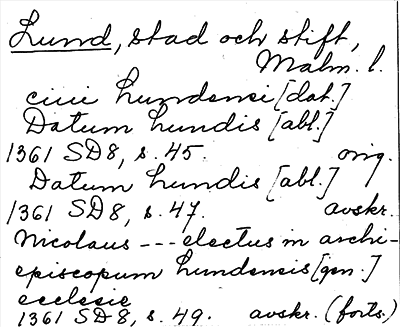 Lund, stad och stift,
Malm. l.
ciui Lundensi [dat.]
Datum Lundis [abl.]
1361 SD8, s. 45. orig.
Datum Lundis [abl.]
1361 SD8, s. 47. avskr.
Nicolaus --- electus in archi-
episcopum Lundensis [gen.]
ecclesie
1361 SD8, s. 49. avskr. (forts.)